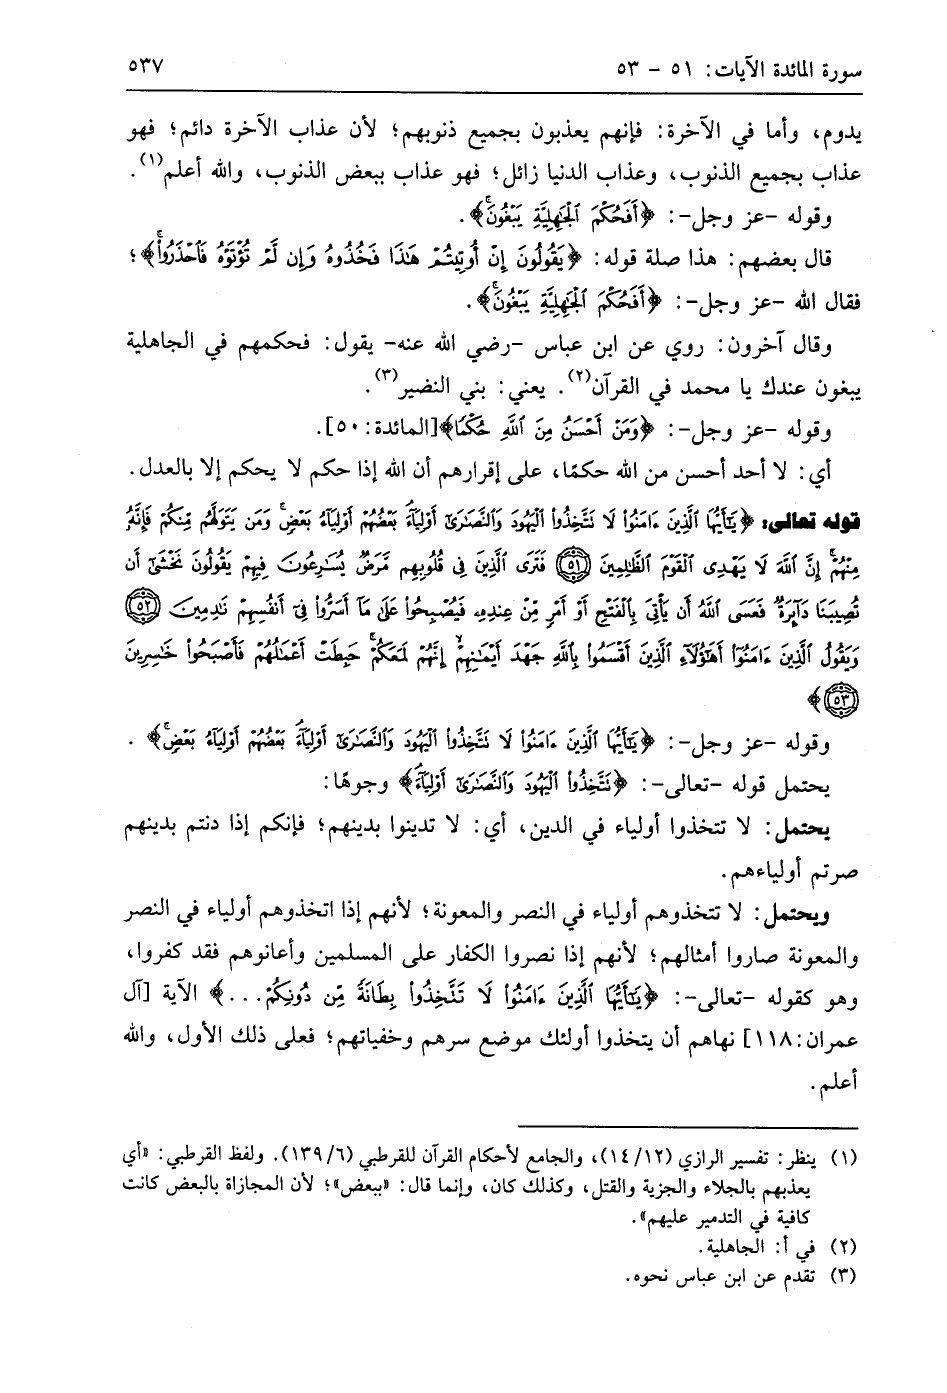 سورة المائدة الآيات: ٥١ - ٥٣ ٥٣٧
يدوم، وأما في الآخرة: فإنهم يعذبون بجميع ذنوبهم؛ لأن عذاب الآخرة دائم؛ فهو
عذاب بجميع الذنوب، وعذاب الدنيا زائل؛ فهو عذاب ببعض الذنوب، والله أعلم(١).
وقوله -عز وجل-: ﴿أَفَحُكْمَ ٱلْجَٰهِلِيَّةِ يَبْغُونَۚ﴾.
قال بعضهم: هذا صلة قوله: ﴿يَقُولُونَ إِنْ أُوتِيتُمْ هَٰذَا فَخُذُوهُ وَإِن لَّمْ تُؤْتَوْهُ فَٱحْذَرُوا۟ۚ﴾؛
فقال الله -عز وجل-: ﴿أَفَحُكْمَ ٱلْجَٰهِلِيَّةِ يَبْغُونَۚ﴾.
وقال آخرون: روي عن ابن عباس -رضي الله عنه- يقول: فحكمهم في الجاهلية
يبغون عندك يا محمد في القرآن(٢). يعني: بني النضير(٣).
وقوله -عز وجل-: ﴿وَمَنْ أَحْسَنُ مِنَ ٱللَّهِ حُكْمًا﴾[المائدة: ٥٠].
أي: لا أحد أحسن من الله حكمًا، على إقرارهم أن الله إذا حكم لا يحكم إلا بالعدل.
قوله تعالى: ﴿يَٰٓأَيُّهَا ٱلَّذِينَ ءَامَنُوا۟ لَا تَتَّخِذُوا۟ ٱلْيَهُودَ وَٱلنَّصَٰرَىٰٓ أَوْلِيَآءَۘ بَعْضُهُمْ أَوْلِيَآءُ بَعْضٍۚ وَمَن يَتَوَلَّهُم مِّنكُمْ فَإِنَّهُۥ
مِنْهُمْۗ إِنَّ ٱللَّهَ لَا يَهْدِى ٱلْقَوْمَ ٱلظَّٰلِمِينَ ﴿٥١﴾ فَتَرَى ٱلَّذِينَ فِى قُلُوبِهِم مَّرَضٌ يُسَٰرِعُونَ فِيهِمْ يَقُولُونَ نَخْشَىٰٓ أَن
تُصِيبَنَا دَآئِرَةٌۚ فَعَسَى ٱللَّهُ أَن يَأْتِىَ بِٱلْفَتْحِ أَوْ أَمْرٍ مِّنْ عِندِهِۦ فَيُصْبِحُوا۟ عَلَىٰ مَآ أَسَرُّوا۟ فِىٓ أَنفُسِهِمْ نَٰدِمِينَ ﴿٥٢﴾
وَيَقُولُ ٱلَّذِينَ ءَامَنُوٓا۟ أَهَٰٓؤُلَآءِ ٱلَّذِينَ أَقْسَمُوا۟ بِٱللَّهِ جَهْدَ أَيْمَٰنِهِمْۙ إِنَّهُمْ لَمَعَكُمْۚ حَبِطَتْ أَعْمَٰلُهُمْ فَأَصْبَحُوا۟ خَٰسِرِينَ
﴿٥٣﴾﴾
وقوله -عز وجل-: ﴿يَٰٓأَيُّهَا ٱلَّذِينَ ءَامَنُوا۟ لَا تَتَّخِذُوا۟ ٱلْيَهُودَ وَٱلنَّصَٰرَىٰٓ أَوْلِيَآءَۘ بَعْضُهُمْ أَوْلِيَآءُ بَعْضٍۚ﴾.
يحتمل قوله -تعالى-: ﴿تَتَّخِذُوا۟ ٱلْيَهُودَ وَٱلنَّصَٰرَىٰٓ أَوْلِيَآءَۘ﴾ وجوهًا:
يحتمل: لا تتخذوا أولياء في الدين، أي: لا تدينوا بدينهم؛ فإنكم إذا دنتم بدينهم
صرتم أولياءهم.
ويحتمل: لا تتخذوهم أولياء في النصر والمعونة؛ لأنهم إذا اتخذوهم أولياء في النصر
والمعونة صاروا أمثالهم؛ لأنهم إذا نصروا الكفار على المسلمين وأعانوهم فقد كفروا،
وهو كقوله -تعالى-: ﴿يَٰٓأَيُّهَا ٱلَّذِينَ ءَامَنُوا۟ لَا تَتَّخِذُوا۟ بِطَانَةً مِّن دُونِكُمْ...﴾ الآية [آل
عمران: ١١٨] نهاهم أن يتخذوا أولئك موضع سرهم وخفياتهم؛ فعلى ذلك الأول، والله
أعلم.
(١) ينظر: تفسير الرازي (١٤/١٢)، والجامع لأحكام القرآن للقرطبي (١٣٩/٦). ولفظ القرطبي: «أي
يعذبهم بالجلاء والجزية والقتل، وكذلك كان، وإنما قال: «ببعض»؛ لأن المجازاة بالبعض كانت
كافية في التدمير عليهم».
(٢) في أ: الجاهلية.
(٣) تقدم عن ابن عباس نحوه.